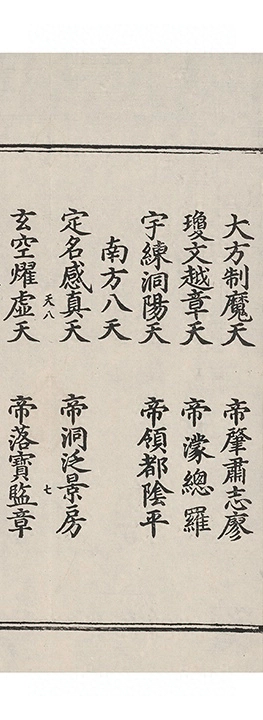 大方制魔天　帝肇肅志廖
瓊文越章天　帝濛總羅
宇練洞陽天　帝領都陰平
南方八天
定名感真天　帝洞泛景房
天八　七
玄空燿虛天　帝落寶監章